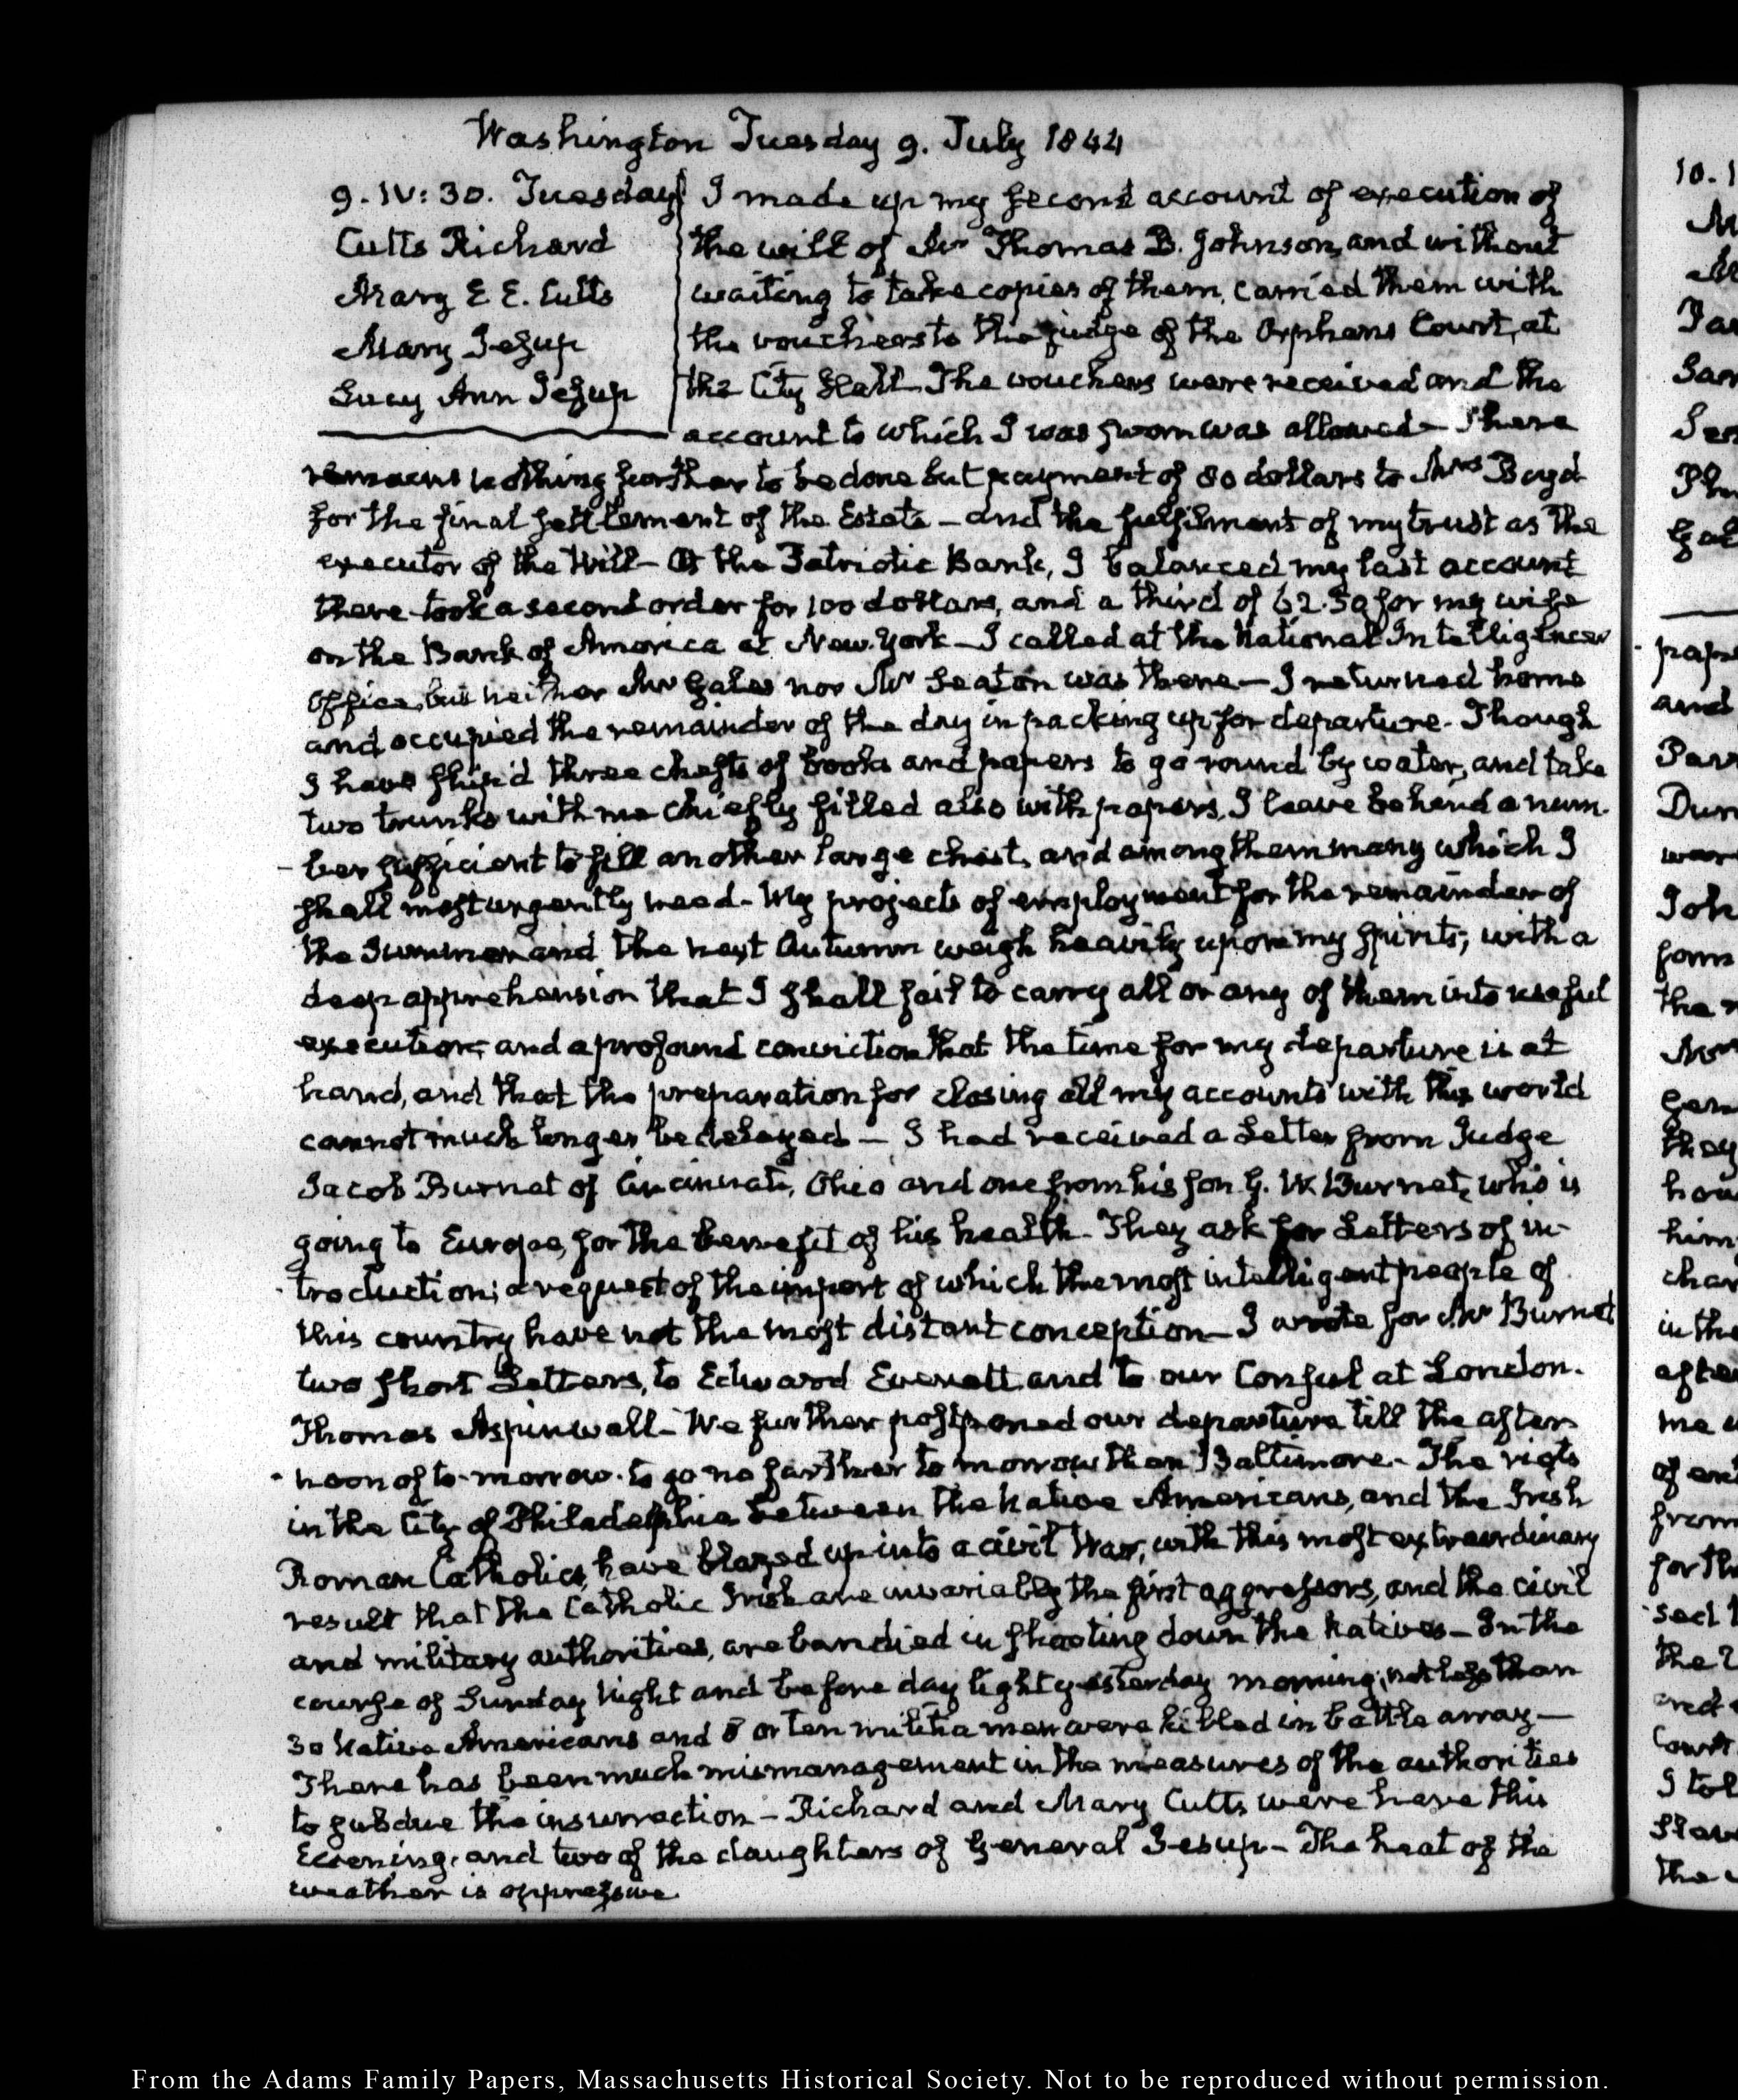 Washington Tuesday 9. July 1844
9. IV: 30. Tuesday
Cutts Richard
Mary E E. Cutts
Mary Jesup
Lucy Ann Jesup
I made up my second account of execution of
the will of Mr Thomas B. Johnson, and without
waiting to take copies of them, carried them with
the vouchers to the judge of the Orphans Court, at
the City Hall. The vouchers were received and the
account to which I was sworn was allowed — There
remains nothing further to be done but payment of 80 dollars to Mrs Boyd
for the final settlement of the Estate — and the fulfilment of my trust as the
executor of the Will — At the Patriotic Bank, I balanced my last account
there took a second order for 100 dollars, and a third of 62.50 for my wife
on the Bank of America at New York — I called at the National Intelligencer
Office, but neither Mr Gales nor Mr Seaton was there — I returned home
and occupied the remainder of the day in packing up for departure. Though
I have ship'd three chests of books and papers to go round by water, and take
two trunks with me chiefly filled also with papers, I leave behind a num-
-ber sufficient to fill another large chest, and among them many which I
shall most urgently need — My projects of employment for the remainder of
the Summer and the next Autumn weigh heavily upon my spirits; with a
deep apprehension that I shall fail to carry all or any of them into useful
execution; and a profound conviction that the time for my departure is at
hand, and that the preparation for closing all my accounts with this world
cannot much longer be delayed — I had received a Letter from Judge
Jacob Burnet of Cincinnati, Ohio and one from his son G. W. Burnet, who is
going to Europe, for the benefit of his health. They ask for Letters of in-
-troduction; a request of the import of which the most intelligent people of
this country have not the most distant conception — I wrote for Mr Burnet
two short Letters, to Edward Everett and to our Consul at London.
Thomas Aspinwall — We further postponed our departure till the after-
-noon of to-morrow. to go no farther to morrow than Baltimore — The riots
in the City of Philadelphia between the Native Americans, and the Irish
Roman Catholics, have blazed up into a civil War, with this most extraordinary
result that the Catholic Irish are invariably the first aggressors, and the civil
and military authorities, are bandied in shooting down the Natives — In the
course of Sunday Night and before day light yesterday morning, not less than
30 Native Americans and 8 or ten militia men were killed in battle array —
There has been much mismanagement in the measures of the authorities
to subdue the insurrection — Richard and Mary Cutts were here this
Evening, and two of the daughters of General Jesup — The heat of the
weather is oppressive
From the Adams Family Papers, Massachusetts Historical Society. Not to be reproduced without permission.